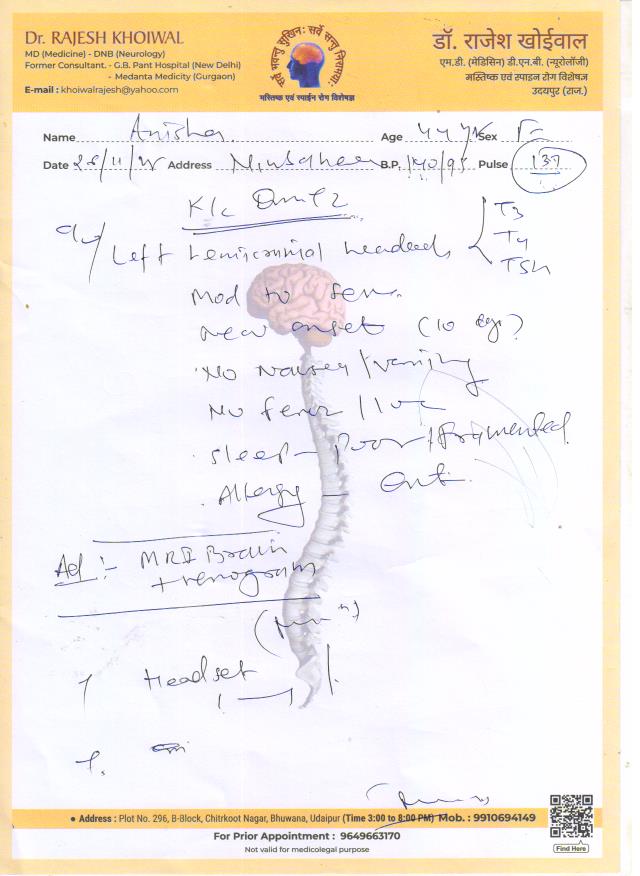 Dr. RAJESH KHOIWAL
MD (Medicine) - DNB (Neurology)
Former Consultant. - G.B. Pant Hospital (New Delhi)
- Medanta Medicity (Gurgaon)
E-mail : khoiwalrajesh@yahoo.com
सर्वे भवन्तु सुखिनः सर्वे सन्तु निरामयाः
मस्तिष्क एवं स्पाईन रोग विशेषज्ञ
डॉ. राजेश खोईवाल
एम.डी. (मेडिसिन) डी.एन.बी. (न्यूरोलॉजी)
मस्तिष्क एवं स्पाइन रोग विशेषज्ञ
उदयपुर (राज.)
Name Anisha Age 44 Yr Sex F
Date Address B.P. 140/95 Pulse 137
K/c
Left hemicranial headache
T3
T4
TSH
Mod to
New onset (10
No nausea / vomiting
No fever / LOC
Sleep - Poor / fragmented
Allergy -
Ad :- MRI Brain
+ venogram
Headset
Address : Plot No. 296, B-Block, Chitrkoot Nagar, Bhuwana, Udaipur (Time 3:00 to 8:00 PM) Mob. : 9910694149
For Prior Appointment : 9649663170
Not valid for medicolegal purpose
Find Here